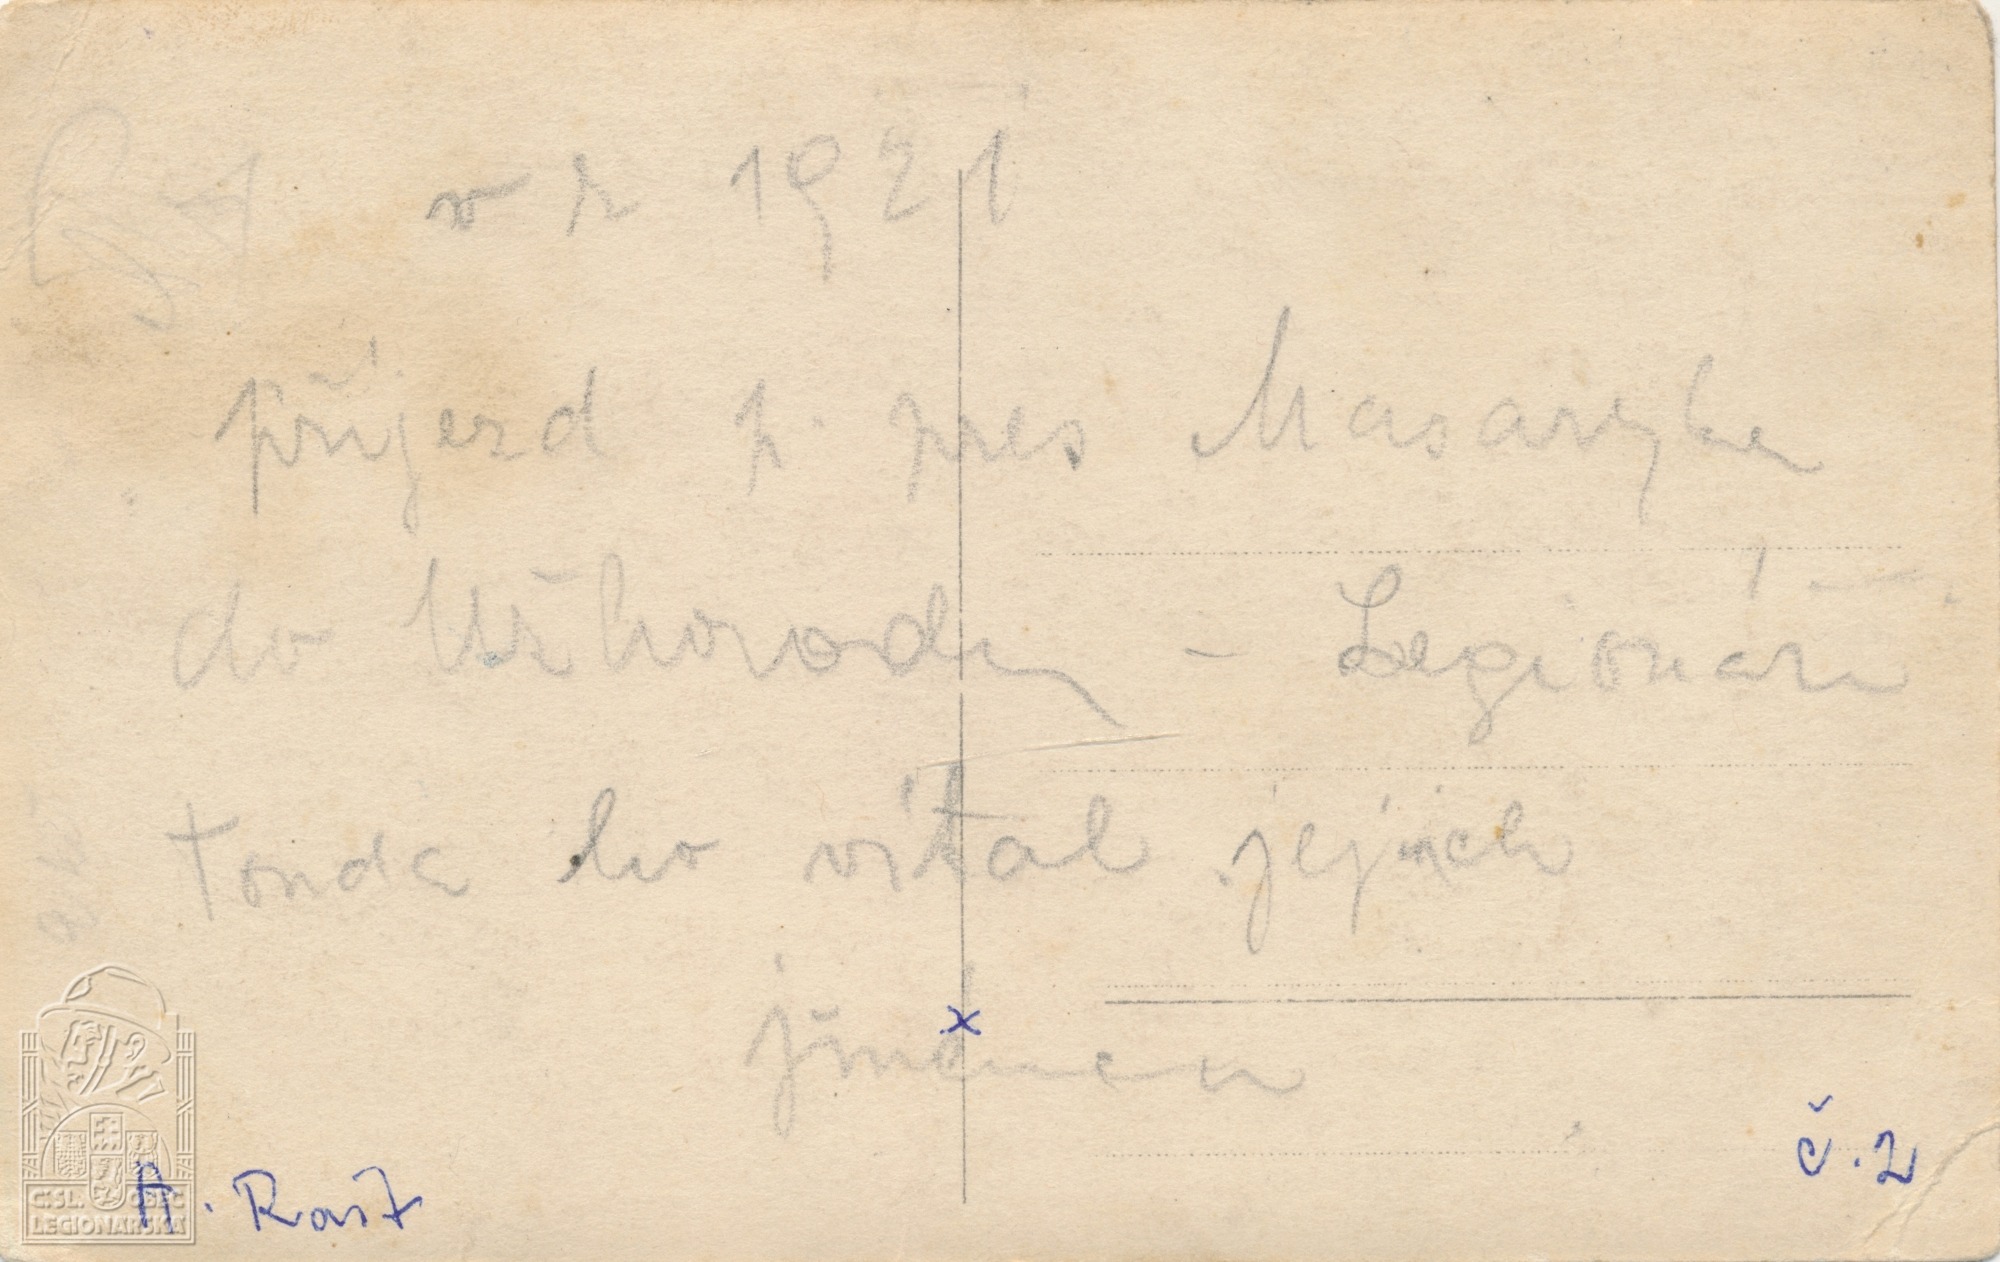 v r 1921
příjezd p. pres Masaryka
do Užhorodu - Legionáři
Tonda ho vítal jejich
jménem
x
č. 2
A.
ČSL. OBEC
LEGIONÁŘSKÁ